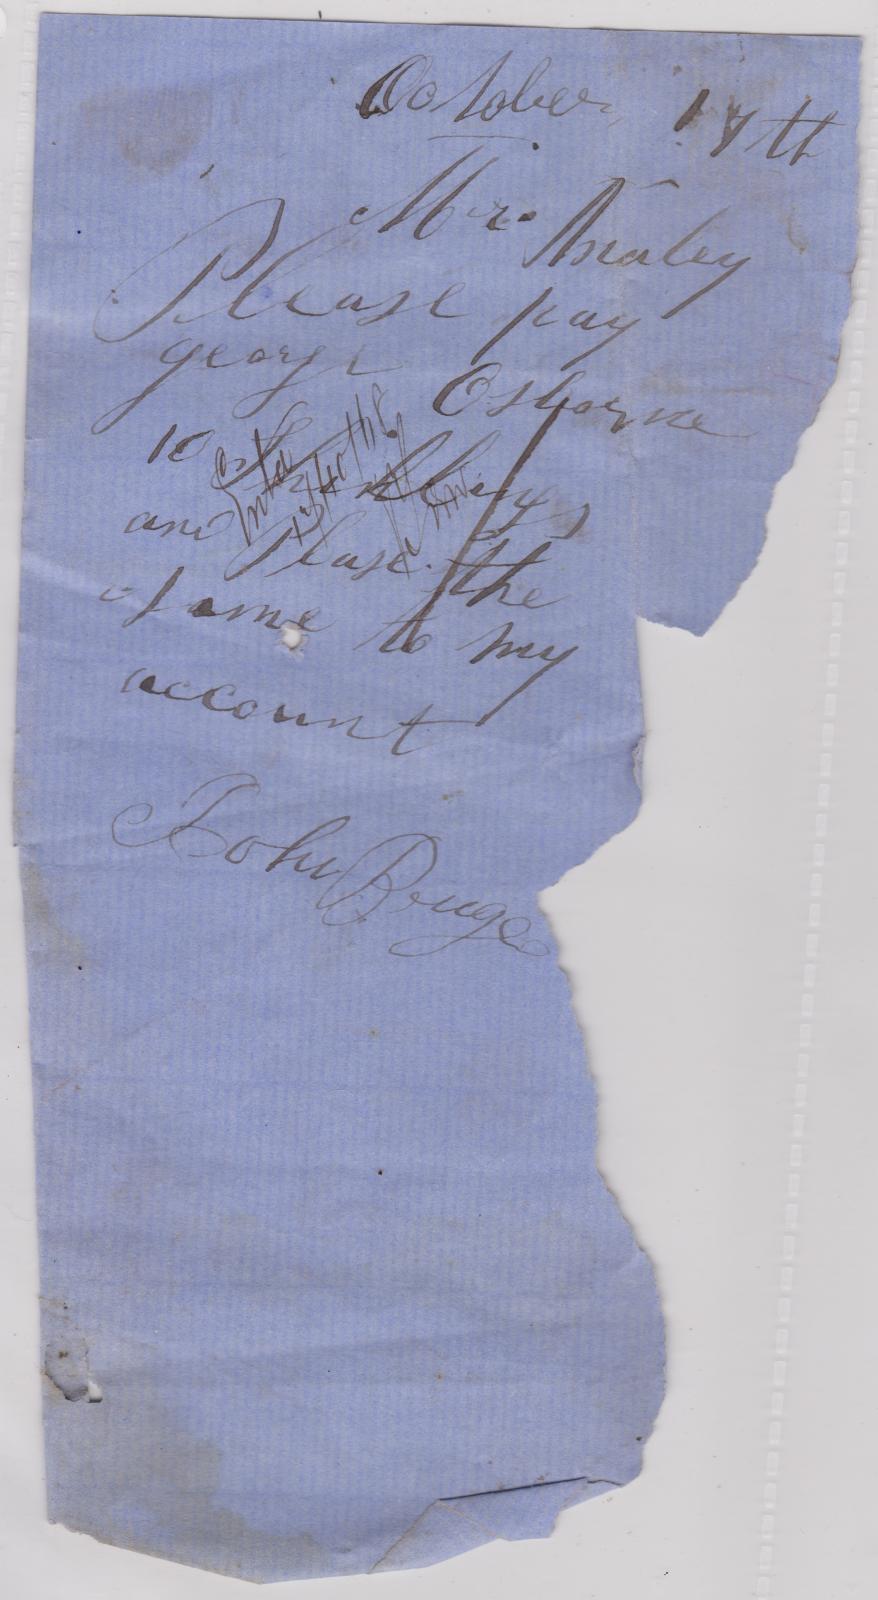 October 17th
Mr. Analey
Please pay
george Osborne
10 Shillings
and Please the
same to my
account
John Bruge